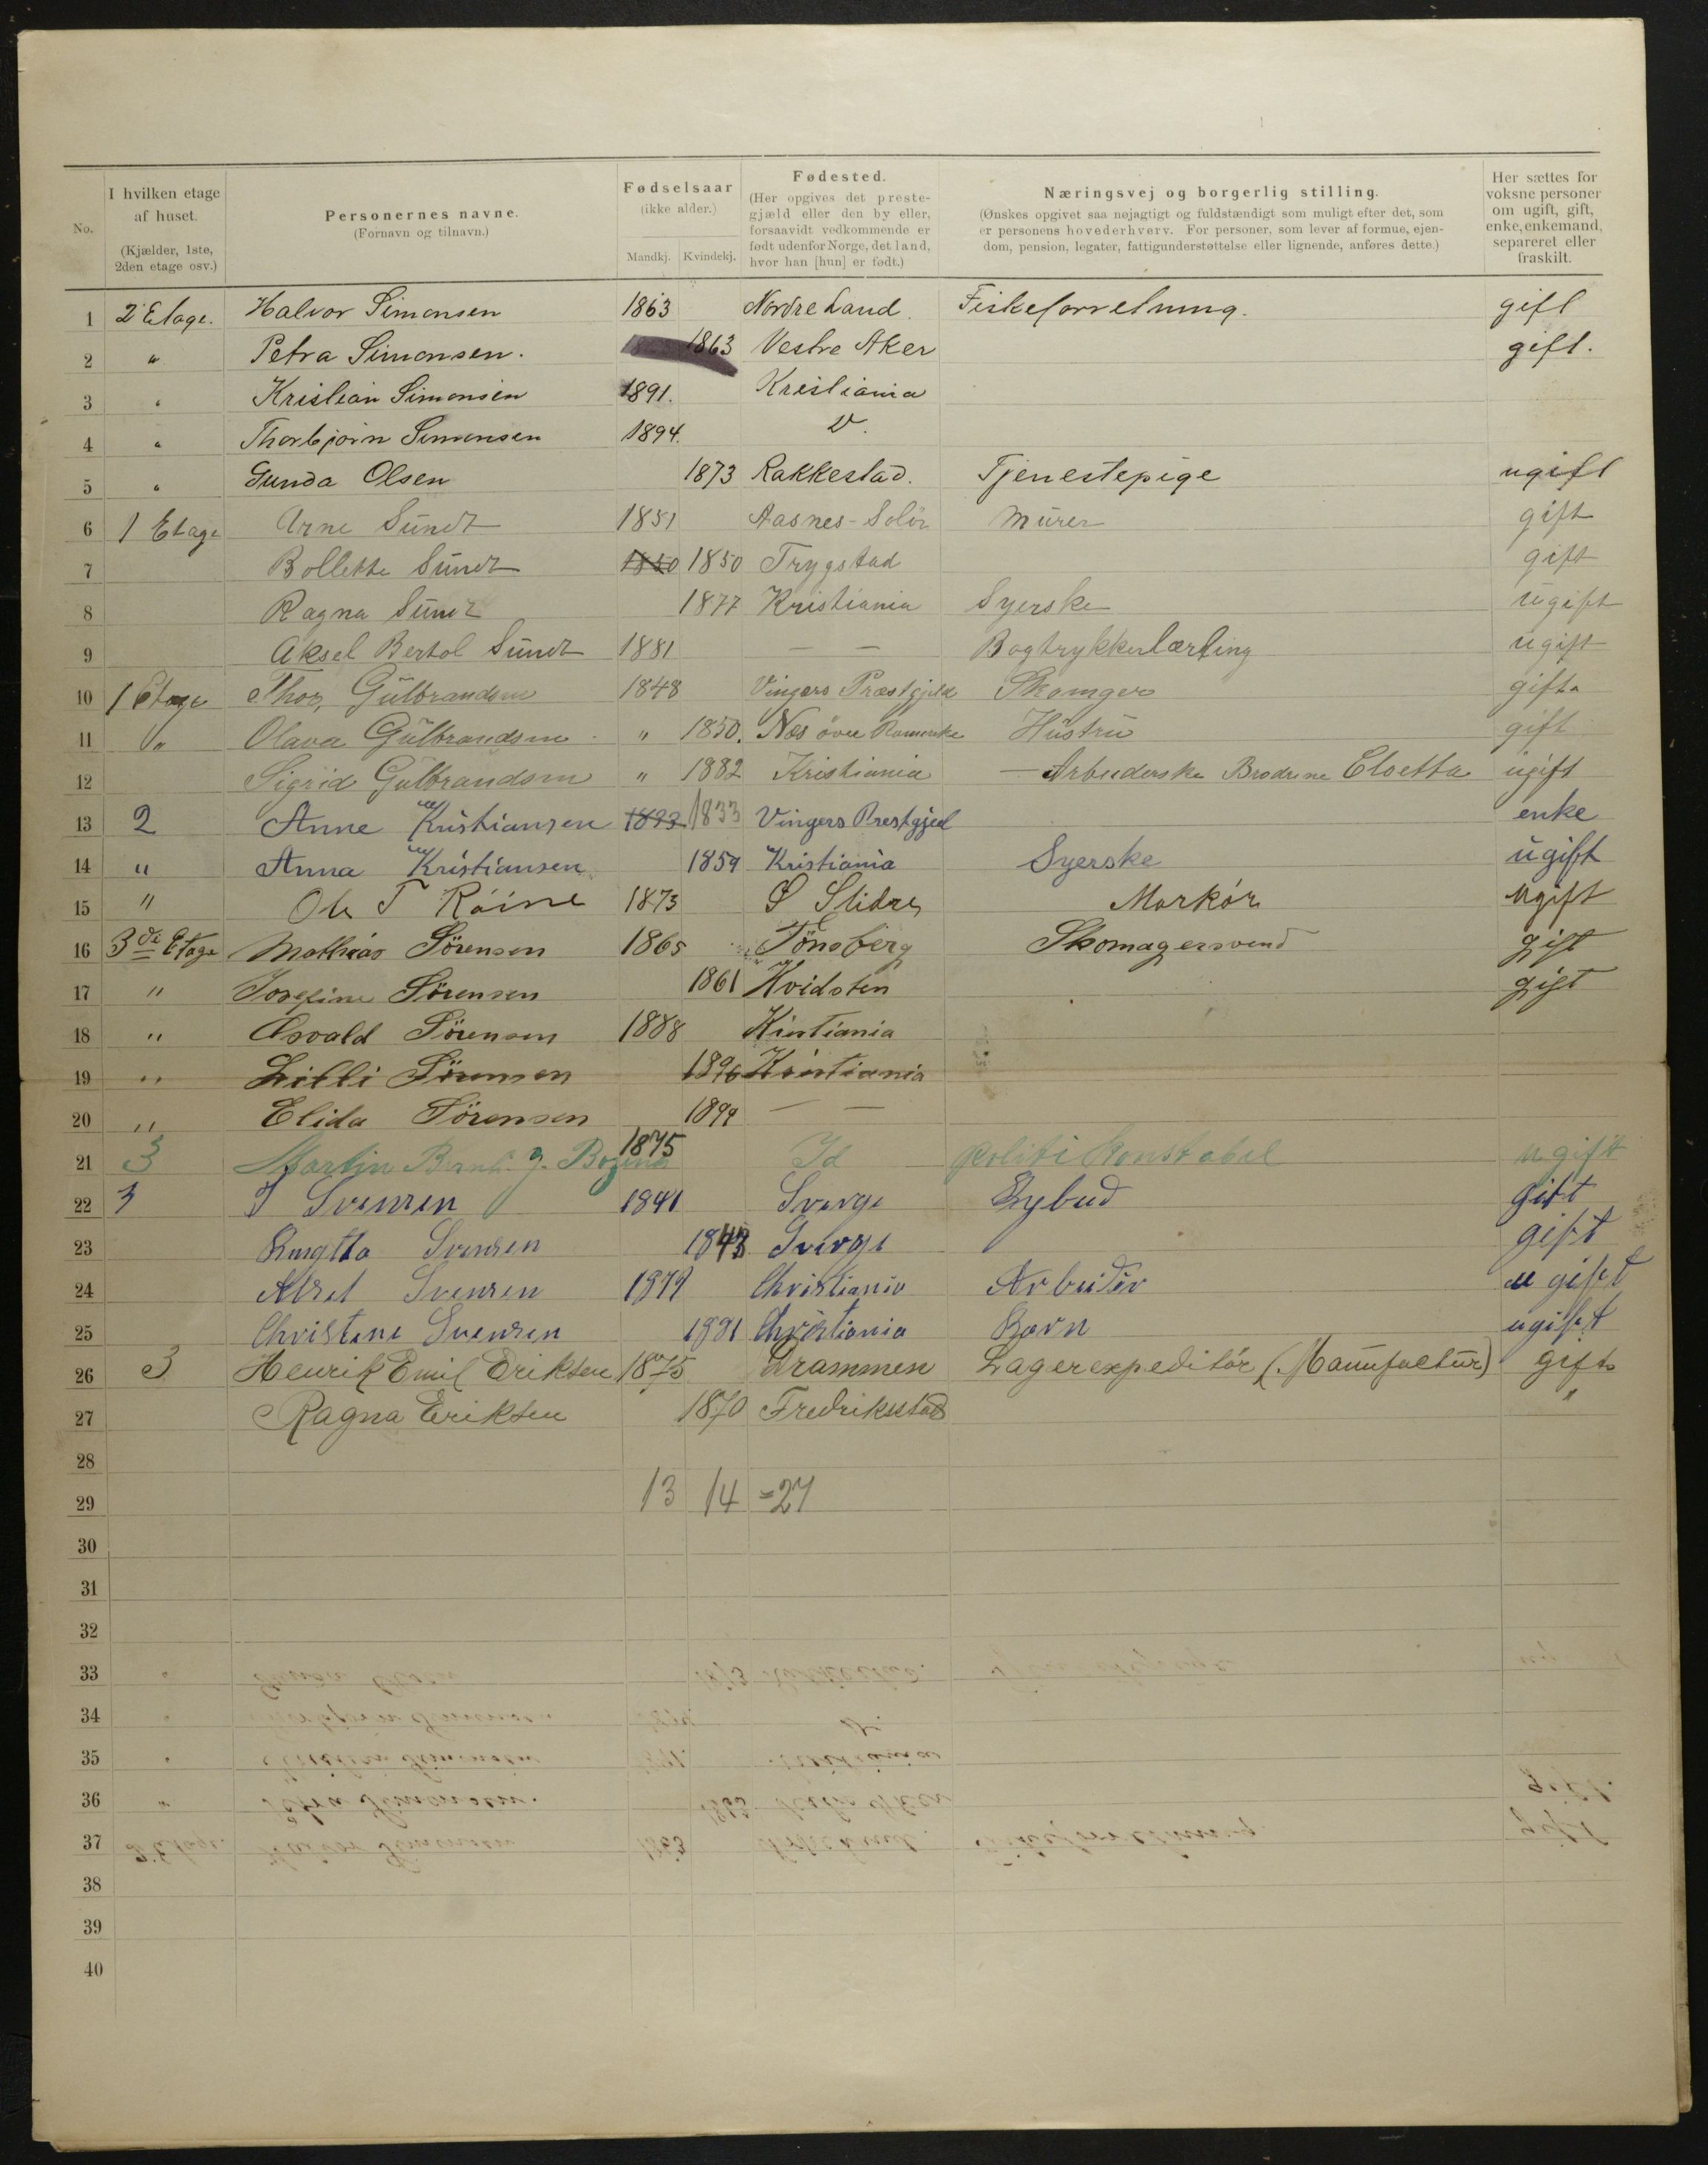 No. | I hvilken etage af huset. (Kjælder, 1ste, 2den etage osv.) | Personernes navne. (Fornavn og tilnavn.) | Fødselsaar (ikke alder.) Mandkj. Kvindekj. | Fødested. (Her opgives det prestegjæld eller den by eller, forsaavidt vedkommende er født udenfor Norge, det land, hvor han [hun] er født.) | Næringsvej og borgerlig stilling. (Ønskes opgivet saa nøjagtigt og fuldstændigt som muligt efter det, som er personens hovederhverv. For personer, som lever af formue, ejendom, pension, legater, fattigunderstøttelse eller lignende, anføres dette.) | Her sættes for voksne personer om ugift, gift, enke, enkemand, separeret eller fraskilt.
1 2 Etage. Halvor Simonsen 1863 Nordre Land. Fiskeforretning. gift
2 " Petra Simonsen. 1863 Vestre Aker gift.
3 " Kristian Simonsen 1891. Kristiania
4 " Thorbjørn Simonsen 1894.
5 " Gunda Olsen 1873 Rakkestad. Tjenestepige ugift
6 1 Etage Arne Sundt 1851 Aasnes-Solör Murer gift
7 Bollette Sundt 1850 1850 Trygstad gift
8 Ragna Sundt 1877 Kristiania Syerske ugift
9 Aksel Bertol Sundt 1881 — — Bogtrykkerlærling ugift
10 1 Etage Thor, Gulbrandsen 1848 Vingers Præstgjeld gift
11 " Olava Gulbrandsen " 1850. Nes övre Romerike Hustru gift
12 Sigrid Gulbrandsen " 1882 Kristiania — Arbeiderske Brødrene Cloetta ugift
13 2 Anne Kristiansen 1833 1833 Vingers Prestgjeld enke
14 " Anna Kristiansen 1859 Kristiania Syerske ugift
15 " Ole T 1873 S Slidre Markör ugift
16 3de Etage Mathias Sörensen 1865 Tönsberg Skomagersvend gift
17 " Josefine Sörensen 1861 Hvidsten gift
18 " Osvald Sörensen 1888 Kristiania
19 " Lilli Sörensen 1896 Kristiania
20 " Elida Sörensen 1899 — —
21 3 Martin Bernh. J. 1875 Id Politi Konstabel ugift
22 3 Svensen 1841 Sverge Bybud gift
23 Svensen 1843 Sverge gift
24 Svensen 1879 Christiania Arbeider ugift
25 Christene Svensen 1891 Christiania Barn ugift
26 3 Henrik Emil Eriksen 1875 Drammen Lagerexpeditör (Manufactur) gift
27 Ragna Eriksen 1870 Fredriksstad "
28
29 13 14 = 27
30
31
32
33
34
35
36
37
38
39
40